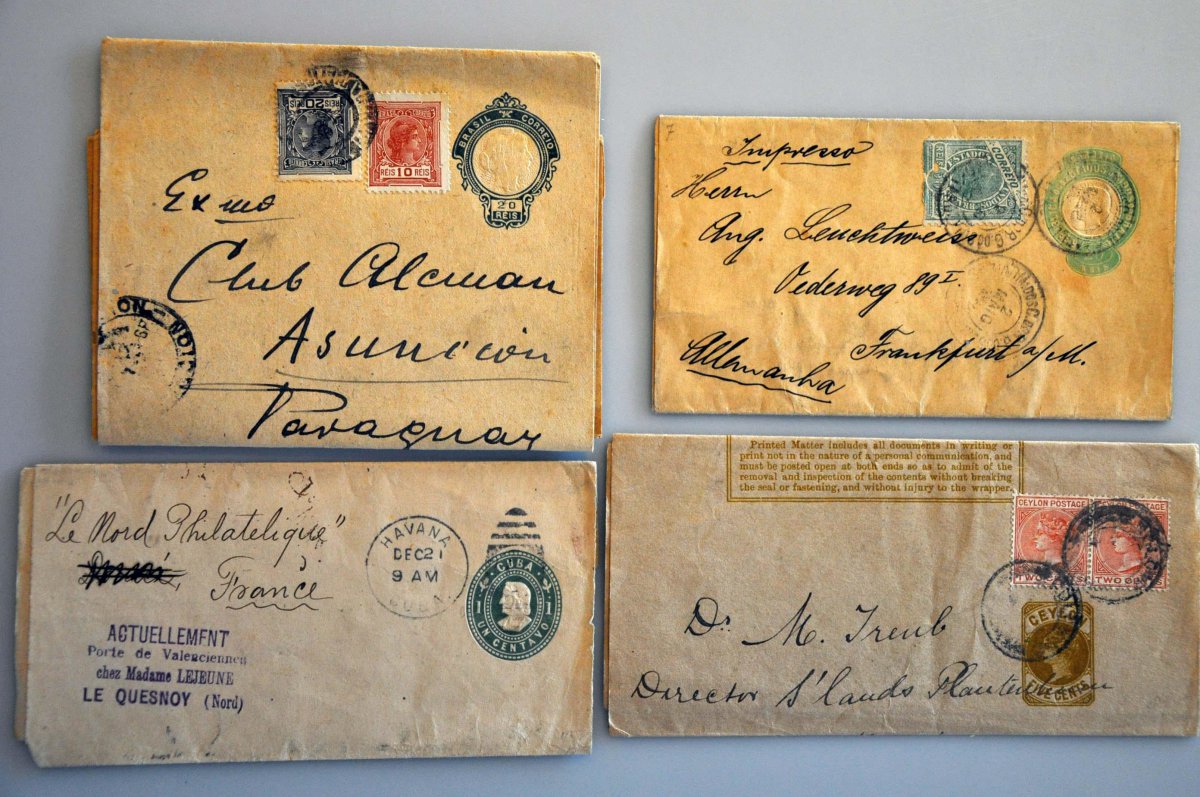 20
REIS
REIS 10 REIS
BRASIL CORREIO
20
REIS
Exmo
Club Alcman
Asunción
Paraguay
7
Impresso
Herrn
Aug. Leuchtweise
Oederweg 89 I.
Frankfurt a/M.
Allemanha
CORREIO
ESTADOS
"Le Nord Philatelique"
France
HAVANA
DEC 21
9 AM
CUBA
CUBA
1 1
UN CENTAVO
ACTUELLEMENT
Porte de Valenciennes
chez Madame LEJEUNE
LE QUESNOY (Nord)
Printed Matter includes all documents in writing or
print not in the nature of a personal communication, and
must be posted open at both ends so as to admit of the
removal and inspection of the contents without breaking
the seal or fastening, and without injury to the wrapper.
CEYLON POSTAGE
POSTAGE
TWO
TWO
CEYLON
FIVE CENTS
Dr. M. Treub
Director S'lands Plantentuin